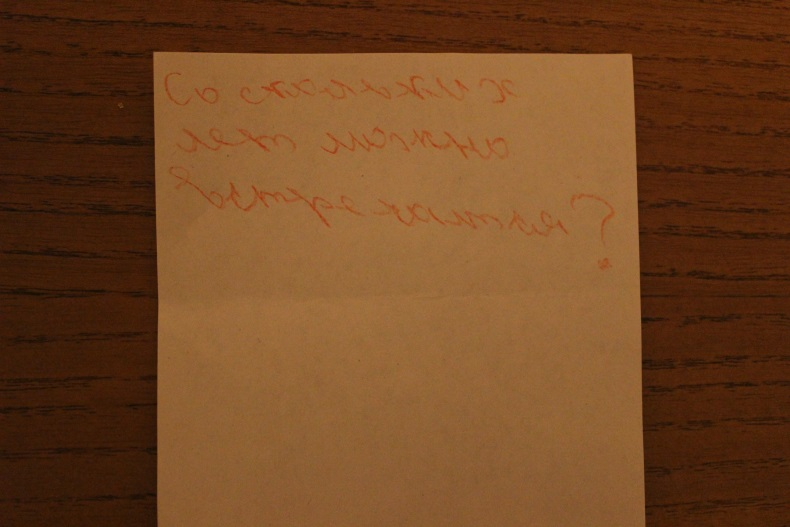 Со скольки х
лет можно
встречатся?